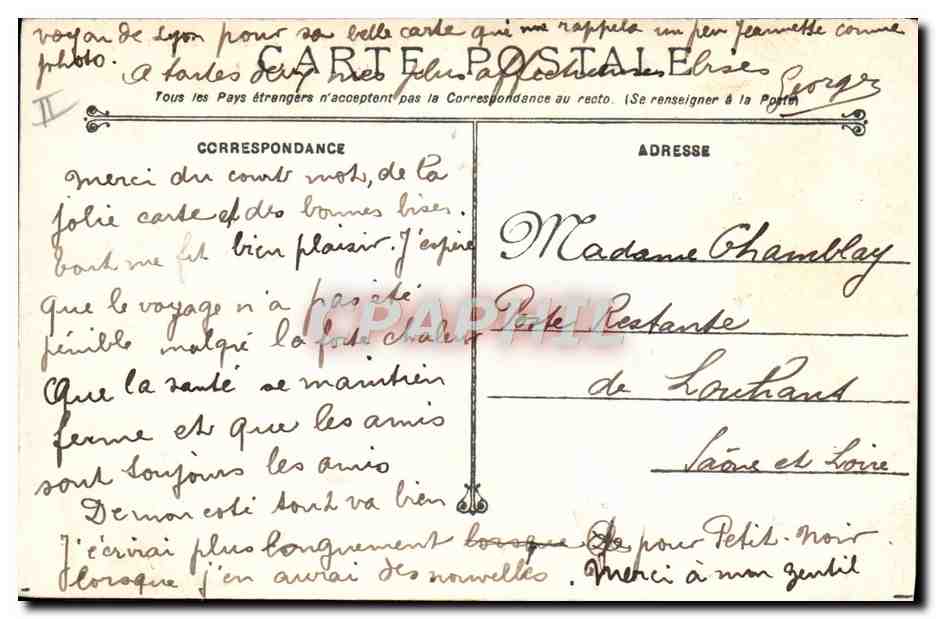 voyou de Lyon pour sa belle carte qui me rappela un peu Jeannette comme
photo.
CARTE POSTALE
A toutes deux mes plus affectueuses bises
Georges
II
Tous les Pays étrangers n'acceptent pas la Correspondance au recto. (Se renseigner à la Poste)
CORRESPONDANCE
Merci du court mot, de la
jolie carte et des bonnes bises.
tout me fit bien plaisir. J'espère
que le voyage n'a pas été
pénible malgré la forte chaleur
Que la santé se maintien
ferme et que les amis
sont toujours les amis
De mon coté tout va bien
J'écrirai plus longuement lorsque pour Petit-Noir.
lorsque j'en aurai des nouvelles. Merci à mon gentil
ADRESSE
Madame Chamblay
Poste Restante
de Louhans
Saône et Loire
CPAPHIL